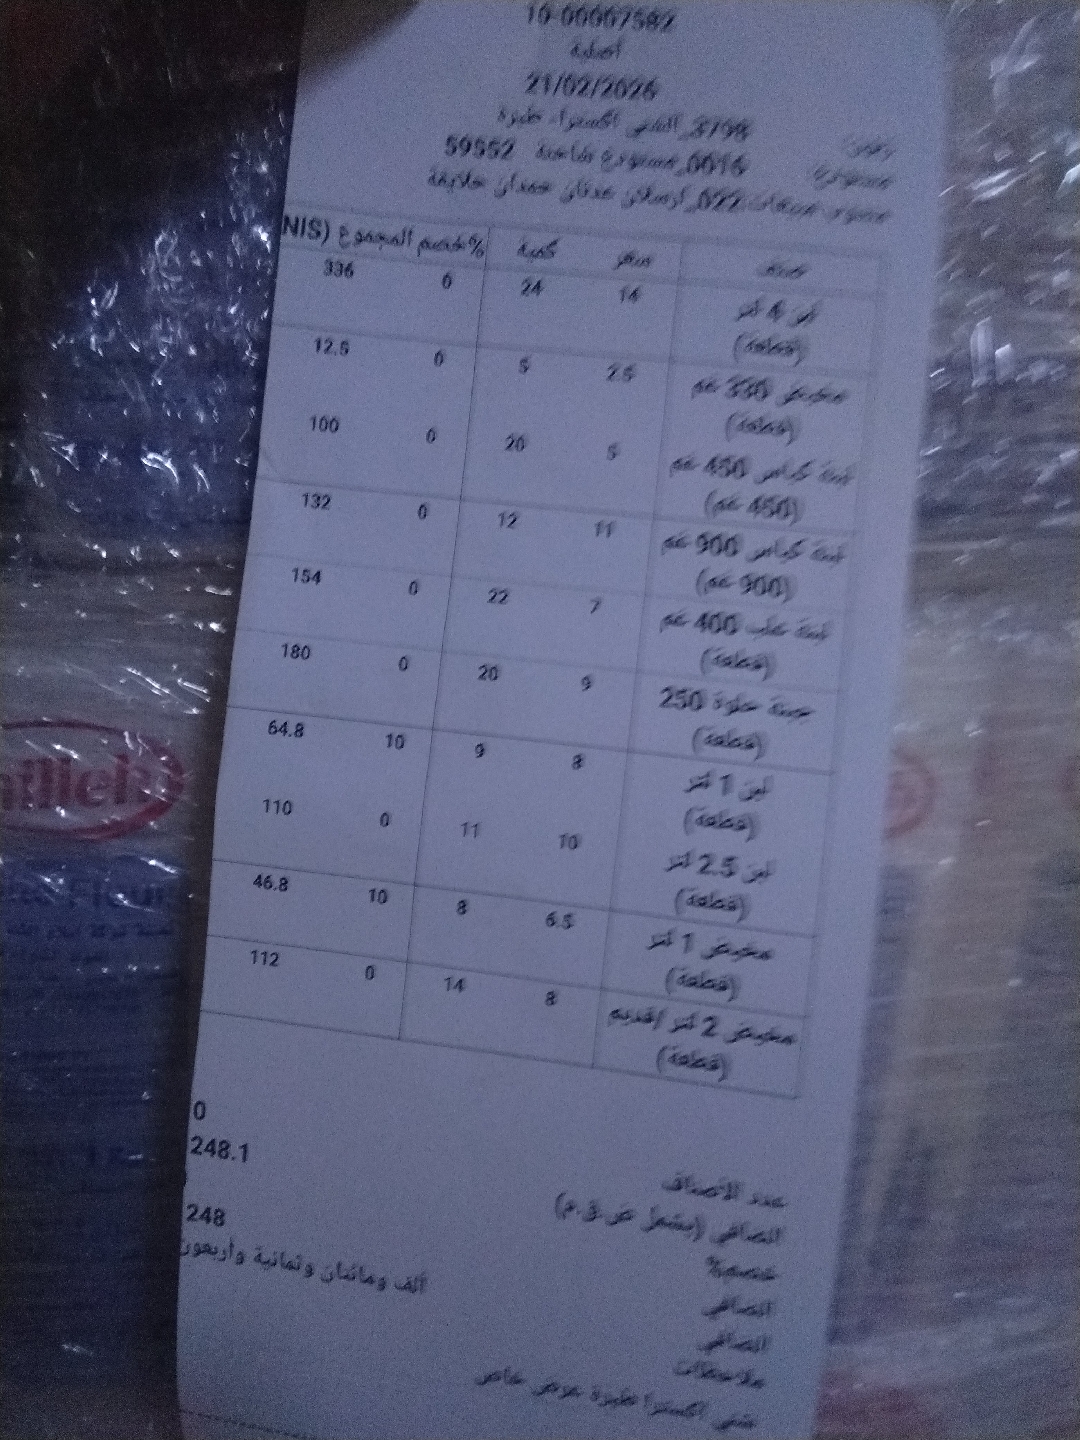 10-00007582
أصلية
21/02/2026
0016 مستودع شاحنة 59552
022 ارسلان عدنان حمدان خلايفة
سعر كمية %خصم المجموع (NIS
لبن 4 لتر 14 24 0 336
(قطعة)
مخيض 330 غم 2.5 5 0 12.5
(قطعة)
لبنة كياس 450 غم 5 20 0 100
(450 غم)
لبنة كياس 900 غم 11 12 0 132
(900 غم)
لبنة علب 400 غم 7 22 0 154
(قطعة)
جبنة حلوة 250 9 20 0 180
(قطعة)
لبن 1 لتر 8 9 10 64.8
(قطعة)
لبن 2.5 لتر 10 11 0 110
(قطعة)
مخيض 1 لتر 6.5 8 10 46.8
(قطعة)
مخيض 2 لتر 8 14 0 112
(قطعة)
عدد الأصناف 0
الصافي (يشمل ض.ق.م) 248.1
خصم%
الصافي 248
الصافي ألف ومائتان وثمانية وأربعون
ملاحظات
عرض خاص
illeh
Flour